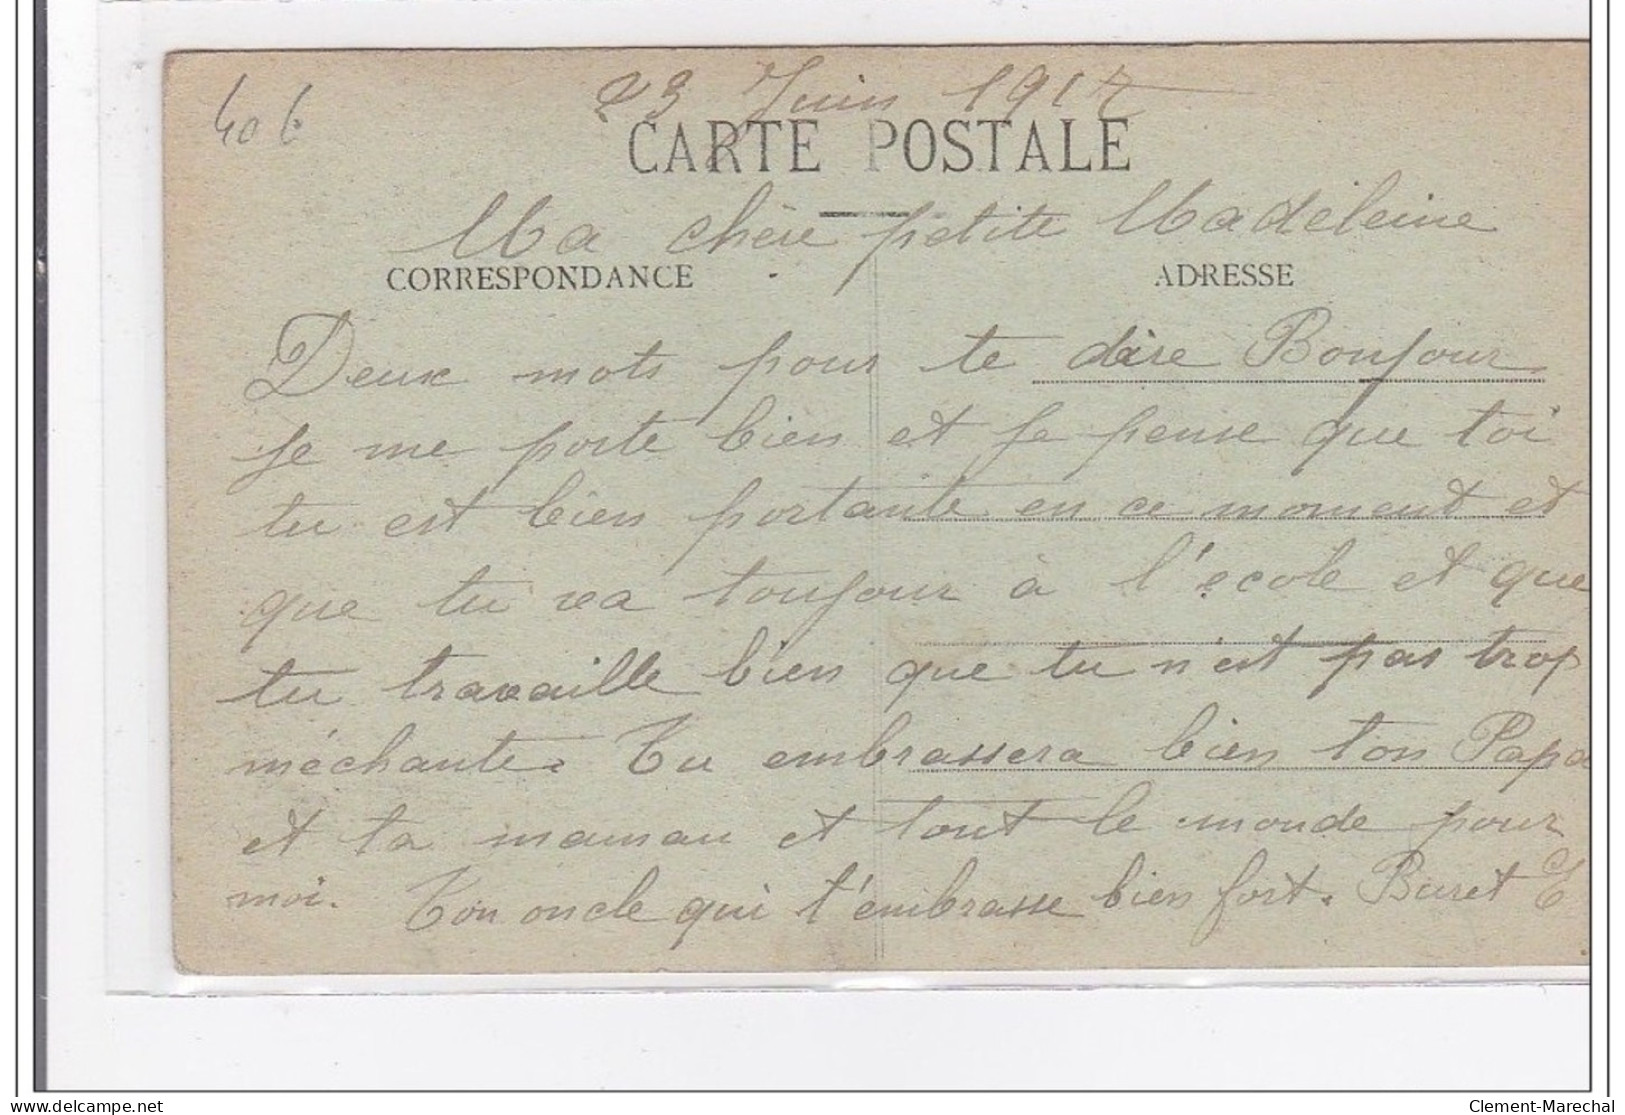 40 6
23 Juin 1917
CARTE POSTALE
Ma chère petite Madeleine
CORRESPONDANCE ADRESSE
Deux mots pour te dire Bonjour
je me porte bien et je pense que toi
tu est bien portante en ce moment et
que tu va toujour à l'école et que
tu travaille bien que tu n'est pas trop
méchante. Tu embrassera bien ton Papa
et ta maman et tout le monde pour
moi. Ton oncle qui t'embrasse bien fort. Buret E
delcampe.net
Clement-Marechal